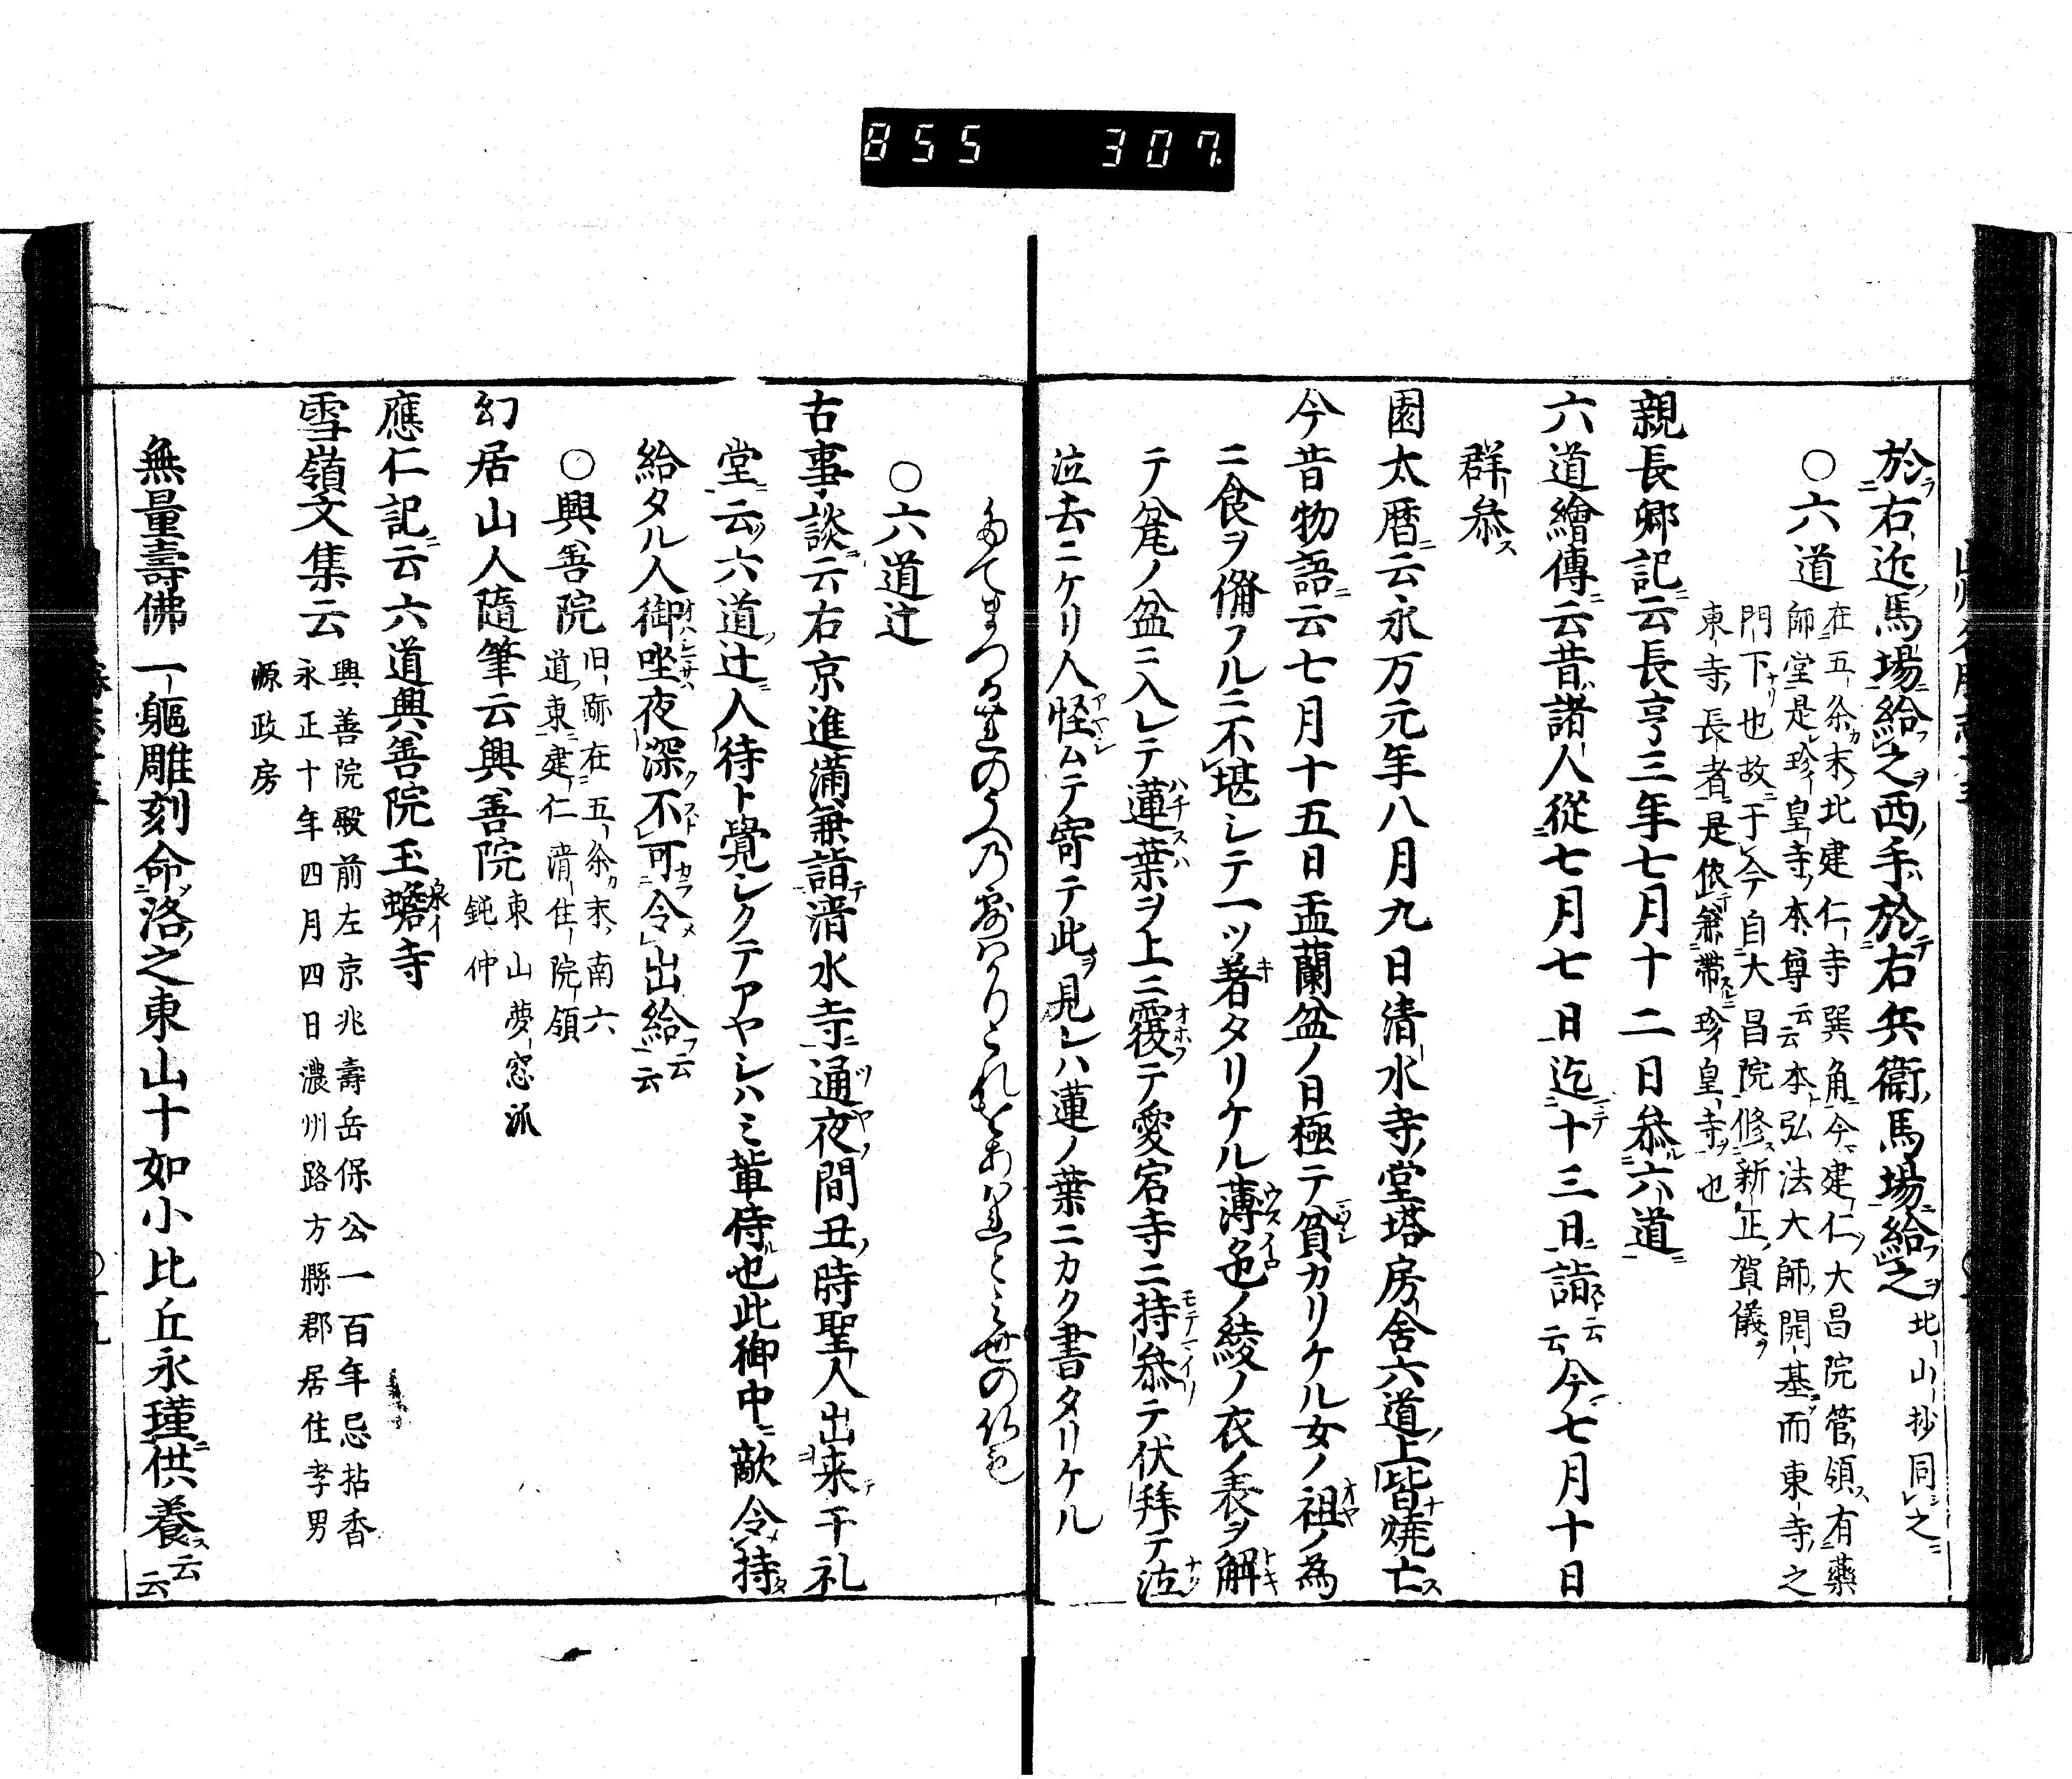 855 307
於右近馬場給之西手於右兵衛馬場給之 北山抄同之
○六道
在五条末北建仁寺巽角今建仁大昌院管領有藥
師堂是珍皇寺本尊云云本弘法大師開基而東寺之
門下也故于今自大昌院修新正賀儀
東寺長者是依兼帶珍皇寺也
親長卿記云長亨三年七月十二日叅六道
六道繪傳云昔諸人從七月七日迄十三日詣云云今七月十日
群叅
園太暦云永万元年八月九日清水寺堂塔房舍六道上皆焼亡
今昔物語云七月十五日盂蘭盆ノ日極テ貧カリケル女ノ祖ノ為
ニ食ヲ備フルニ不堪シテ一ツ著タリケル薄色ノ綾ノ衣ノ表ヲ解
テ瓮ノ盆ニ入レテ蓮葉ヲ上ニ覆テ愛宕寺ニ持叅テ伏拜テ泣
泣去ニケリ人怪ムテ寄テ此ヲ見レハ蓮ノ葉ニカク書タリケル
たてまつる蓮のうへの露はかりこれをあはれとみ世の仏も
○六道辻
古事談云右京進蒲兼詣清水寺通夜間丑時聖人出来干礼
堂云六道辻人待ト覺シクテアヤシハミ輩侍也此御中敵令持
給タル人御坐夜深不可令出給云云
○興善院
旧跡在五条末南六
道東建仁清住院領
幻居山人隨筆云興善院
東山夢窓派
鈍仲
應仁記云六道興善院玉蟾寺
泉イ
雪嶺文集云
興善院殿前左京兆壽岳保公一百年忌拈香
永正十年四月四日濃州路方縣郡居住孝男
源政房
無量壽佛一軀雕刻命洛之東山十如小比丘永瑾供養云云